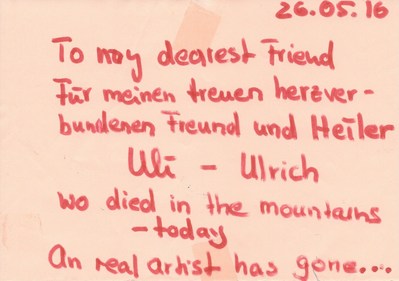 26.05.16
To my dearest Friend
Für meinen treuen herzver-
bundenen Freund und Heiler
Uli - Ulrich
wo died in the mountains
- today
An real artist has gone...